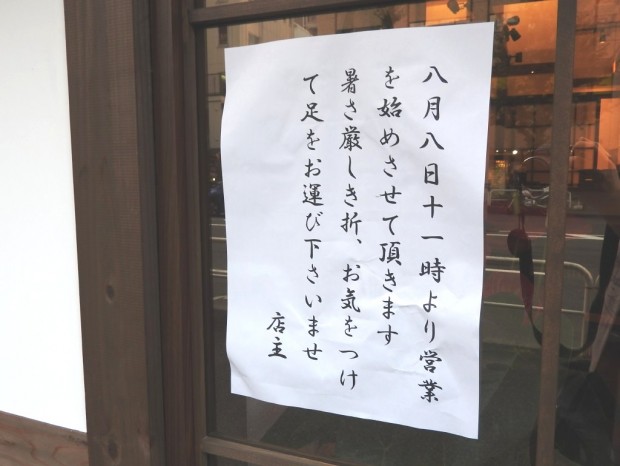 八月八日十一時より営業
を始めさせて頂きます
暑さ厳しき折、お気をつけ
て足をお運び下さいませ
店主